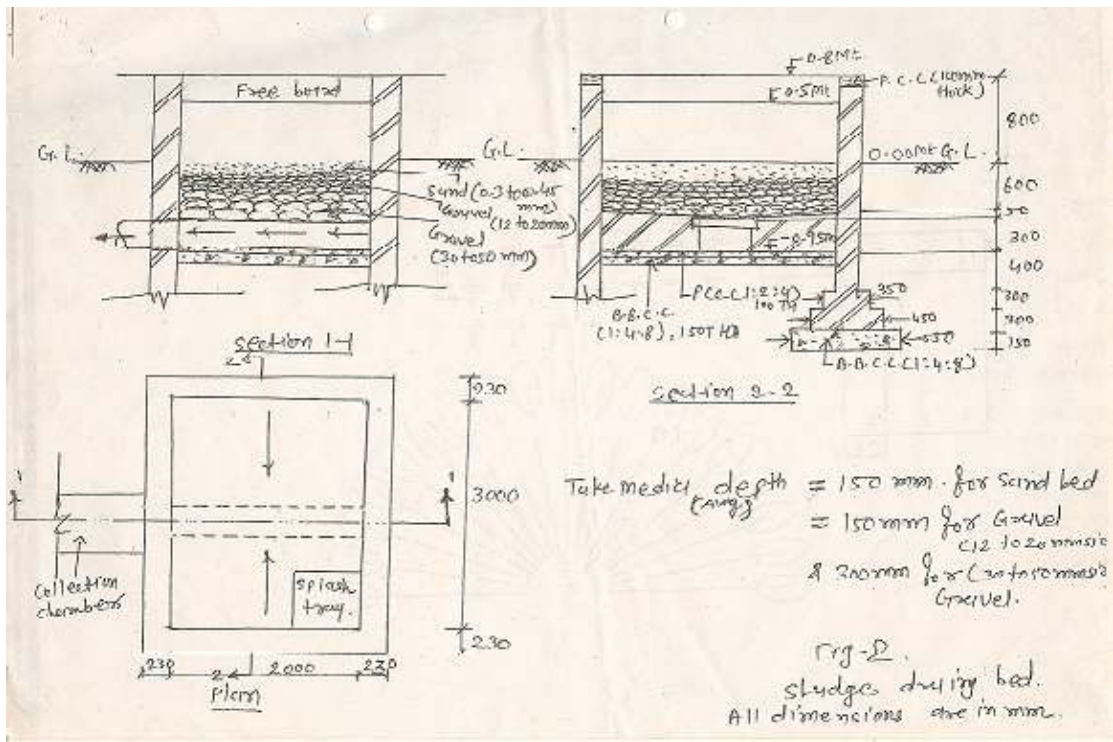 Free board
G.L.
G.L.
Sand (0.3 to 0.45 mm)
Gravel (12 to 20mm)
Gravel (30 to 50 mm)
Section 1-1
0.8Mt
0.5Mt
P.C.C (100mm thick)
800
0.00Mt G.L.
600
50
300
400
300
300
150
350
450
550
P.C.C (1:2:4) 100 TH
B.B.C.C. (1:4:8), 150 THK
B.B.C.C (1:4:8)
Section 2-2
230
3000
230
1
1
2
2
collection chambers
splash tray.
230
2000
230
Plan
Take media depth = 150 mm. for sand bed
(avg)
= 150mm for Gravel
(12 to 20mm
& 300mm for (30 to 50mm
Gravel.
Fig-2.
sludge drying bed.
All dimensions are in mm.